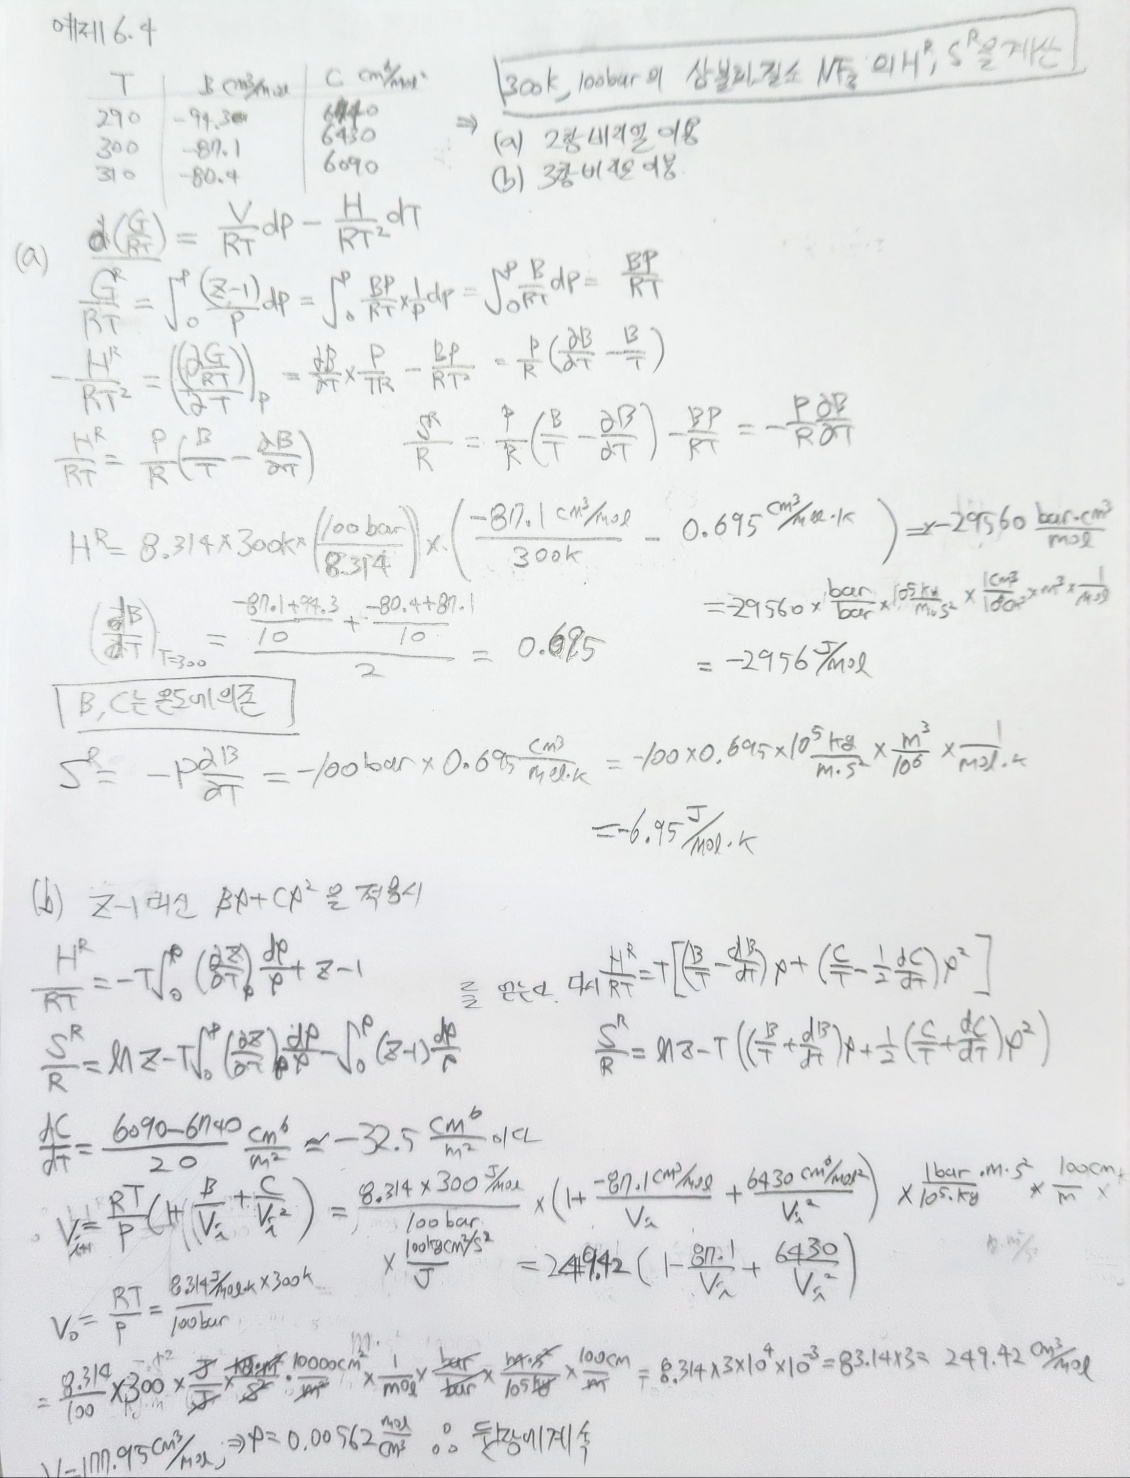 예제 6.4
T B cm³/mol C cm⁶/mol²
290 -94.3 6740
300 -87.1 6430
310 -80.4 6090
300k, 100bar의 삼불화질소 NF₃ 의 Hᴿ, Sᴿ을 계산
⇒ (a) 2항 비리얼 이용
(b) 3항 비리얼 이용
(a) d(G/RT) = V/RT dP - H/RT² dT
Gᴿ/RT = ∫₀ᴾ (Z-1)/P dP = ∫₀ᴾ BP/RT × 1/P dP = ∫₀ᴾ B/RT dP = BP/RT
-Hᴿ/RT² = (∂(G/RT)/∂T)_P = ∂B/∂T × P/TR - BP/RT² = P/R (∂B/∂T - B/T)
Hᴿ/RT = P/R (B/T - ∂B/∂T) Sᴿ/R = P/R (B/T - ∂B/∂T) - BP/RT = -P/R ∂B/∂T
Hᴿ = 8.314 × 300k × (100bar/8.314) × (-87.1 cm³/mol / 300k - 0.695 cm³/mol·k) = -29560 bar·cm³/mol
= -29560 × bar/bar × 10⁵kg/m·s² × 1cm³/100cm³ × m³ × 1/mol
(dB/dT)_T=300 = ((-87.1+94.3)/10 + (-80.4+87.1)/10)/2 = 0.695
= -2956 J/mol
B, C는 온도에 의존
Sᴿ = -P ∂B/∂T = -100bar × 0.695 cm³/mol·k = -100×0.695×10⁵ kg/m·s² × m³/10⁶ × 1/mol·k
= -6.95 J/mol·k
(b) Z-1 대신 Bρ+Cρ² 을 적용시
Hᴿ/RT = -T∫₀ᵖ (∂Z/∂T)ρ dρ/ρ + Z-1 를 얻는다. 다시 Hᴿ/RT = T[(B/T - dB/dT)ρ + (C/T - 1/2 dC/dT)ρ²]
Sᴿ/R = lnZ - T∫₀ᵖ (∂Z/∂T)ρ dρ/ρ - ∫₀ᵖ (Z-1) dρ/ρ Sᴿ/R = lnZ - T((B/T + dB/dT)ρ + 1/2 (C/T + dC/dT)ρ²)
dC/dT = (6090-6740)/20 cm⁶/m² ≃ -32.5 cm⁶/m² 이다
V_i+1 = RT/P (1 + B/V_i + C/V_i²) = 8.314×300 J/mol / 100bar × (1 + -87.1cm³/mol / V_i + 6430cm⁶/mol² / V_i²) × 1bar·m·s²/10⁵·kg × 100cm/m ×
× 100kgcm²/s² / J = 249.42 (1 - 87.1/V_i + 6430/V_i²)
V₀ = RT/P = 8.314 J/mol·k × 300k / 100bar
= 8.314/100 × 300 × J/J × kg·m²/s² · 10000cm²/m² × 1/mol × bar/bar × m·s²/10⁵kg × 100cm/m = 8.314×3×10⁴×10⁻³ = 83.14×3 = 249.42 cm³/mol
V=177.95cm³/mol, ⇒ρ= 0.00562 mol/cm³ ∴ 뒷장에 계속